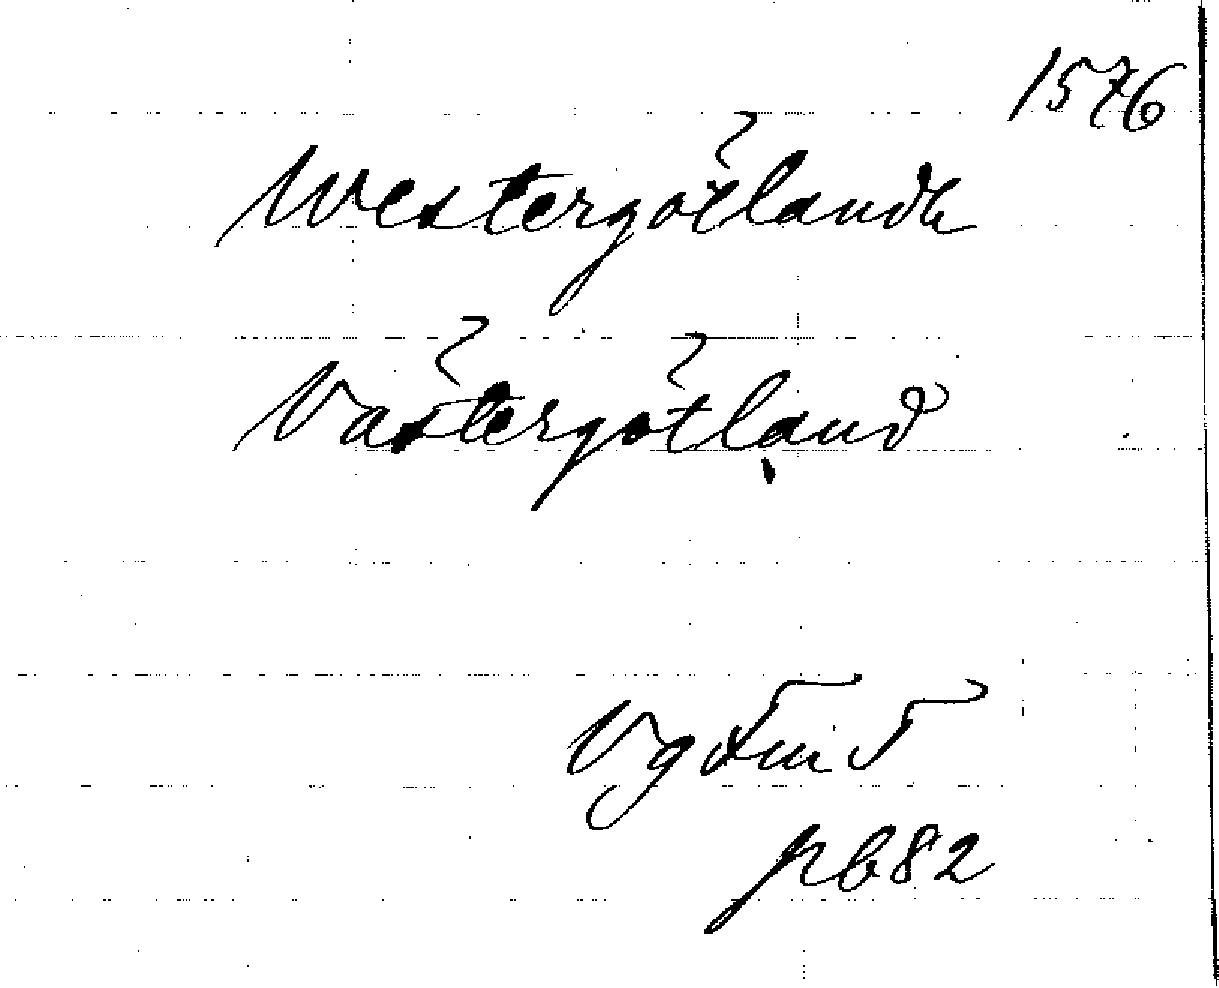 1576
Westergötlandh
Västergötland
p 682